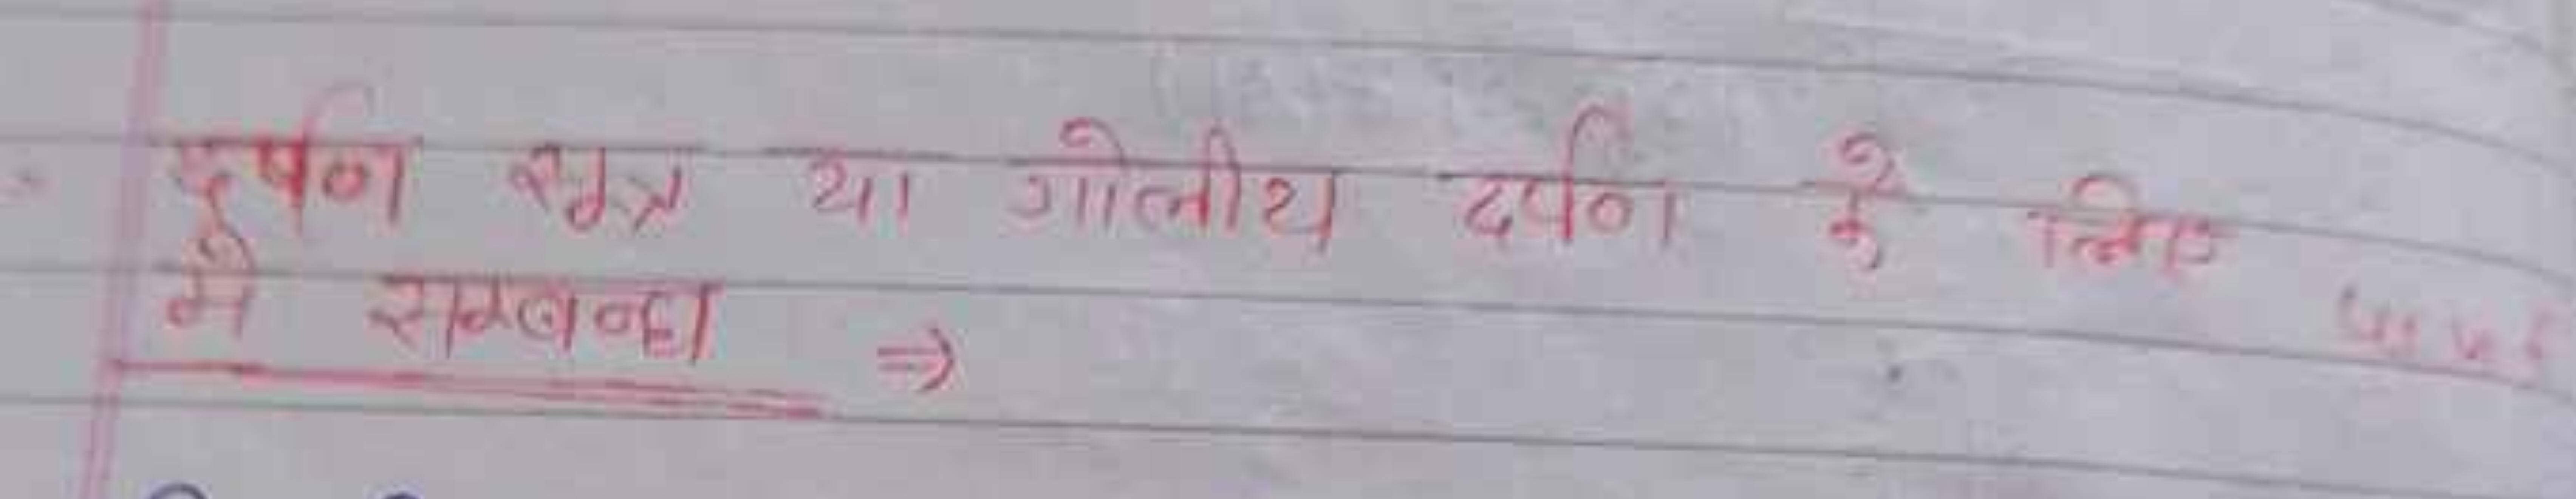 दर्पण सूत्र या गोलीय दर्पण के लिए
में सम्बन्ध ⇒